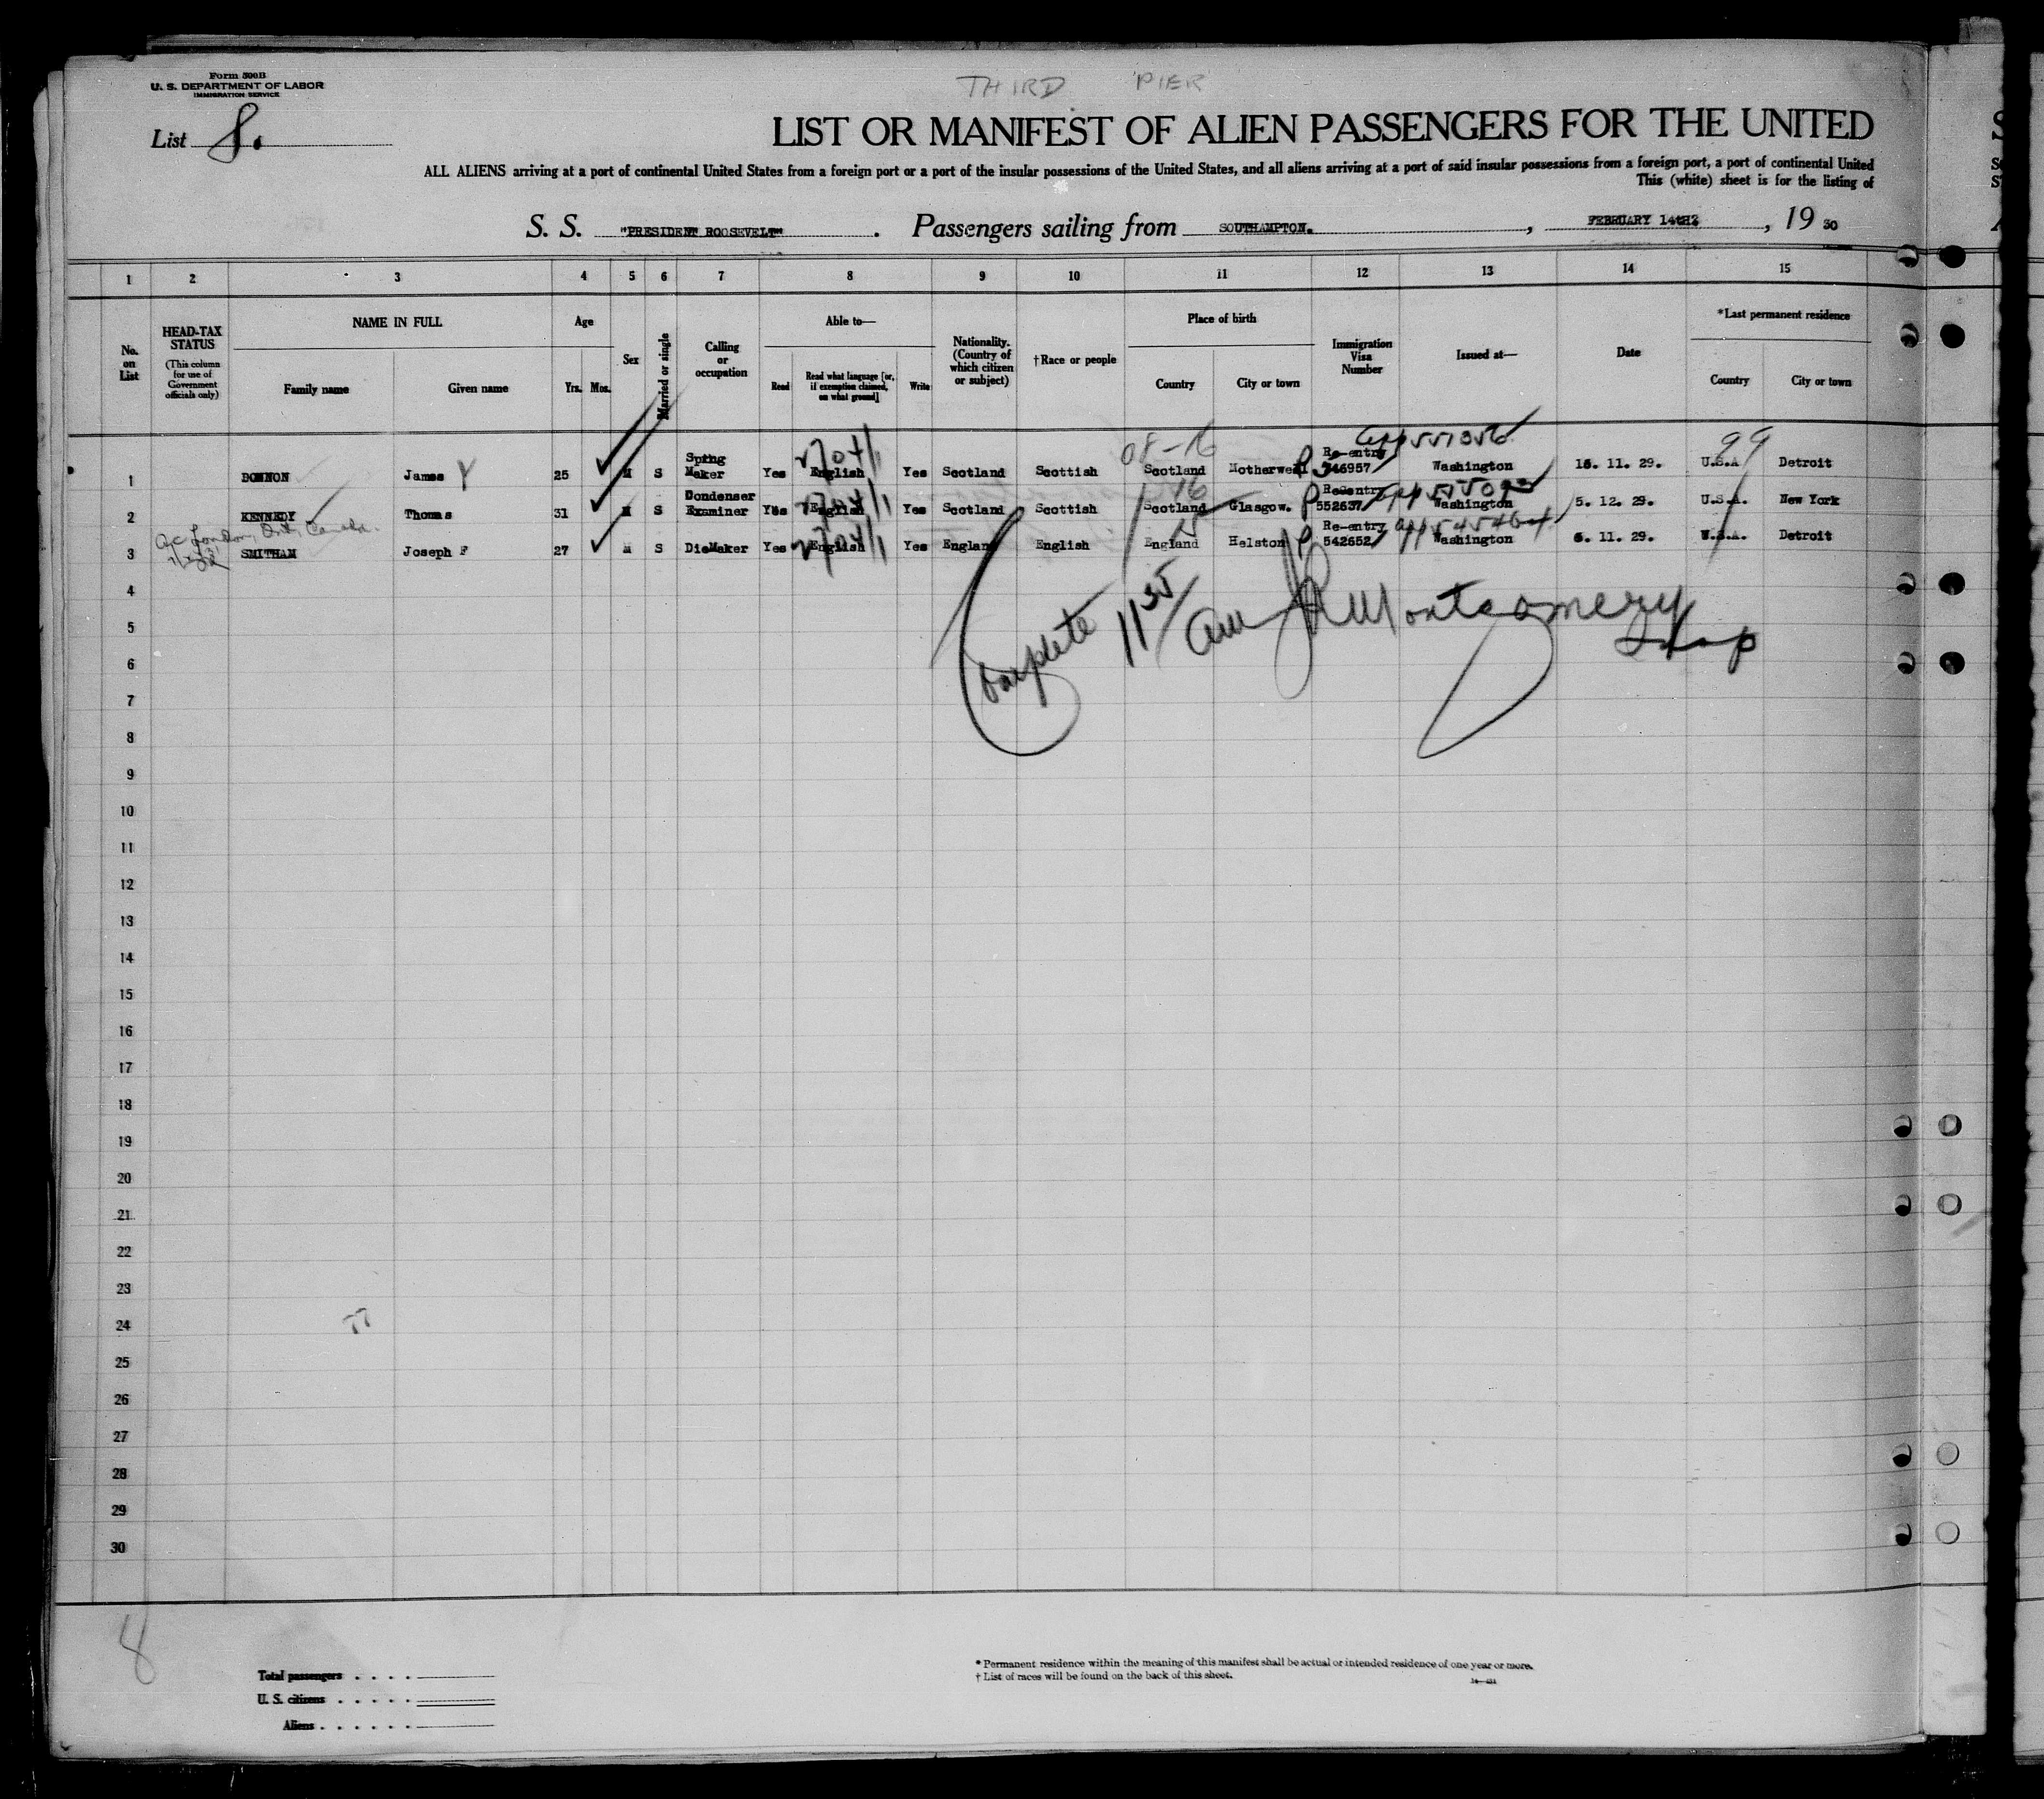 THIRD PIER
Form 500B
U. S. DEPARTMENT OF LABOR
IMMIGRATION SERVICE
List 8.
LIST OR MANIFEST OF ALIEN PASSENGERS FOR THE UNITED
ALL ALIENS arriving at a port of continental United States from a foreign port or a port of the insular possessions of the United States, and all aliens arriving at a port of said insular possessions from a foreign port, a port of continental United
This (white) sheet is for the listing of
S. S. "PRESIDENT ROOSEVELT" . Passengers sailing from SOUTHAMPTON. , FEBRUARY 14th , 19 30
1 2 3 4 5 6 7 8 9 10 11 12 13 14 15
No. on List
HEAD-TAX STATUS (This column for use of Government officials only)
NAME IN FULL Family name Given name
Age Yrs. Mos.
Sex
Married or single
Calling or occupation
Able to— Read Read what language [or, if exemption claimed, on what ground] Write
Nationality. (Country of which citizen or subject)
†Race or people
Place of birth Country City or town
Immigration Visa Number
Issued at—
Date
*Last permanent residence Country City or town
08-16 99
1 James 25 M S Spring Maker Yes English Yes Scotland Scottish Scotland Motherwell Re-entry 546957 Washington 15. 11. 29. U.S.A Detroit
2 KENNEDY Thomas 31 M S Condenser Examiner Yes English Yes Scotland Scottish Scotland Glasgow. Re-entry 552637 Washington 5. 12. 29. U.S.A. New York
London, Ont, Canada.
3 SMITHAM Joseph F 27 M S DieMaker Yes English Yes England English England Helston Re-entry 542652 Washington 6. 11. 29. U.S.A. Detroit
4
5
Complete 11 35 am Montgomery
Insp
6
7
8
9
10
11
12
13
14
15
16
17
18
19
20
21
22
23
24
25
26
27
28
29
30
8
Total passengers . . . .
U. S. citizens . . . . .
Aliens . . . . . .
* Permanent residence within the meaning of this manifest shall be actual or intended residence of one year or more.
† List of races will be found on the back of this sheet.